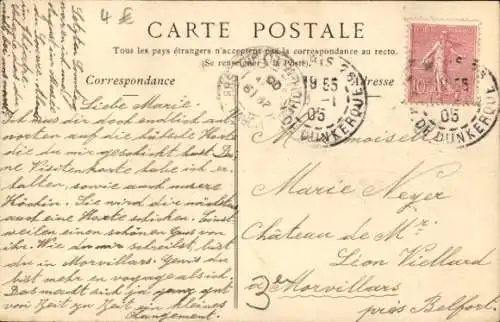 4 £
CARTE POSTALE
Tous les pays étrangers n'acceptent pas la correspondance au recto.
(Se renseigner à la Poste).
Correspondance
Adresse
19 55
05
DUNKERQUE
10
05
DUNKERQUE
Liebe Marie!
Ich muss dir doch endlich ant-
worten auf die hübsche Karte
die du mir geschickt hast. De
ine Visitenkarte habe ich er-
halten, sowie auch unsere
Köchin. Sie wird dir nächstens
auch eine Karte schicken. Einst
weilen einen schönen Gruss von
ihr. Wie du mir schreibst, bist
du in Morvillars. Gewis du
bist mehr en voyage als ich.
Das macht dich ja ganz gut
von Zeit zu Zeit ein kleines
Changement.
Mademoiselle
Marie Neyer
Château de Mr
Léon Viellard
à Morvillars
près Belfort